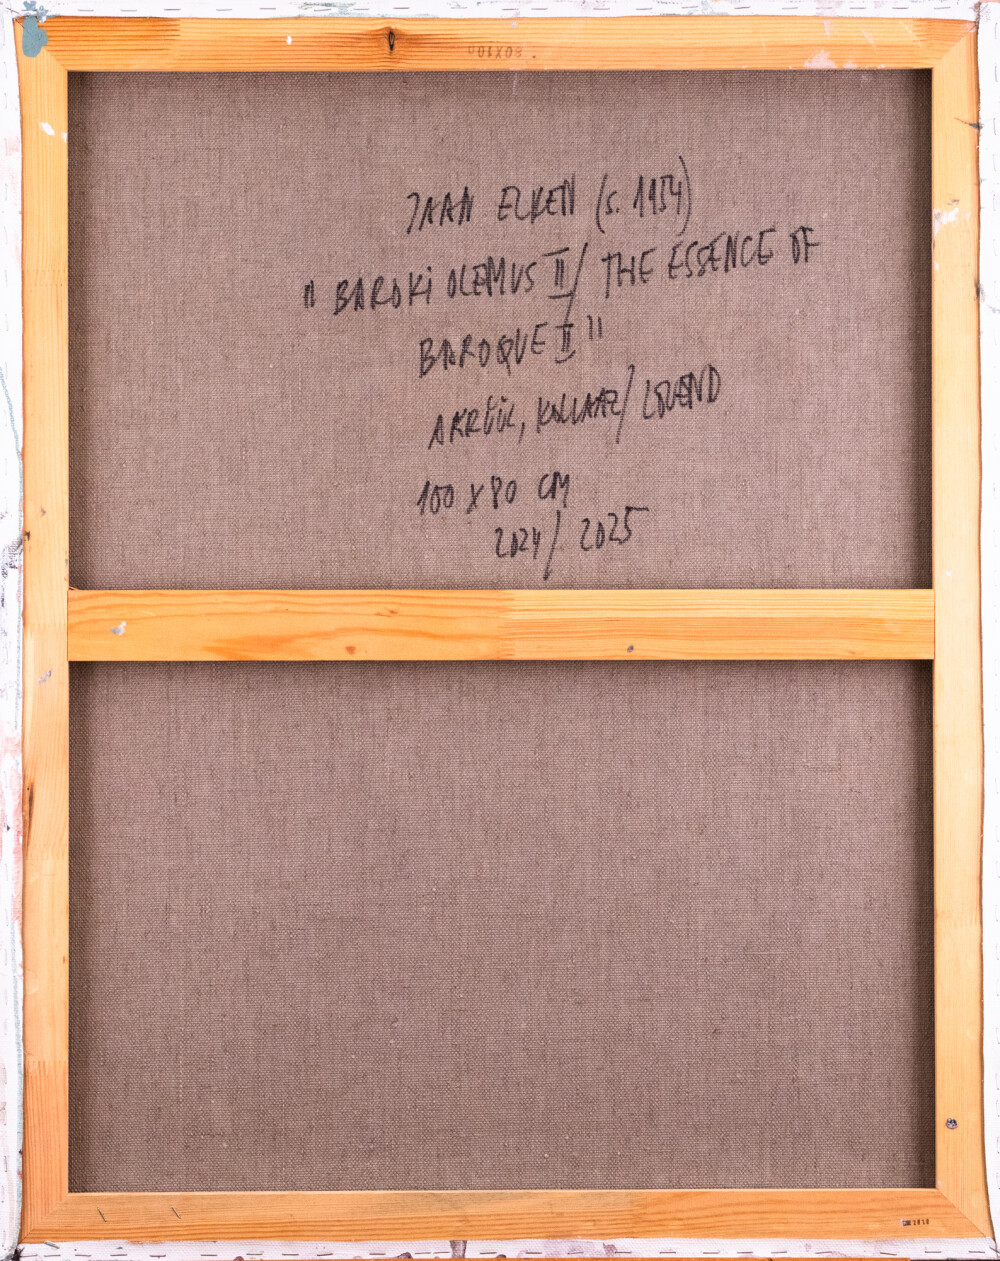 80X100
JAAN ELKEN (s. 1954)
" BAROKi OLEMUS II / THE ESSENCE OF
BAROQUE II "
AKRÜÜL, KOLLAAZ / LÕUEND
100 X 80 CM
2024 / 2025
2010